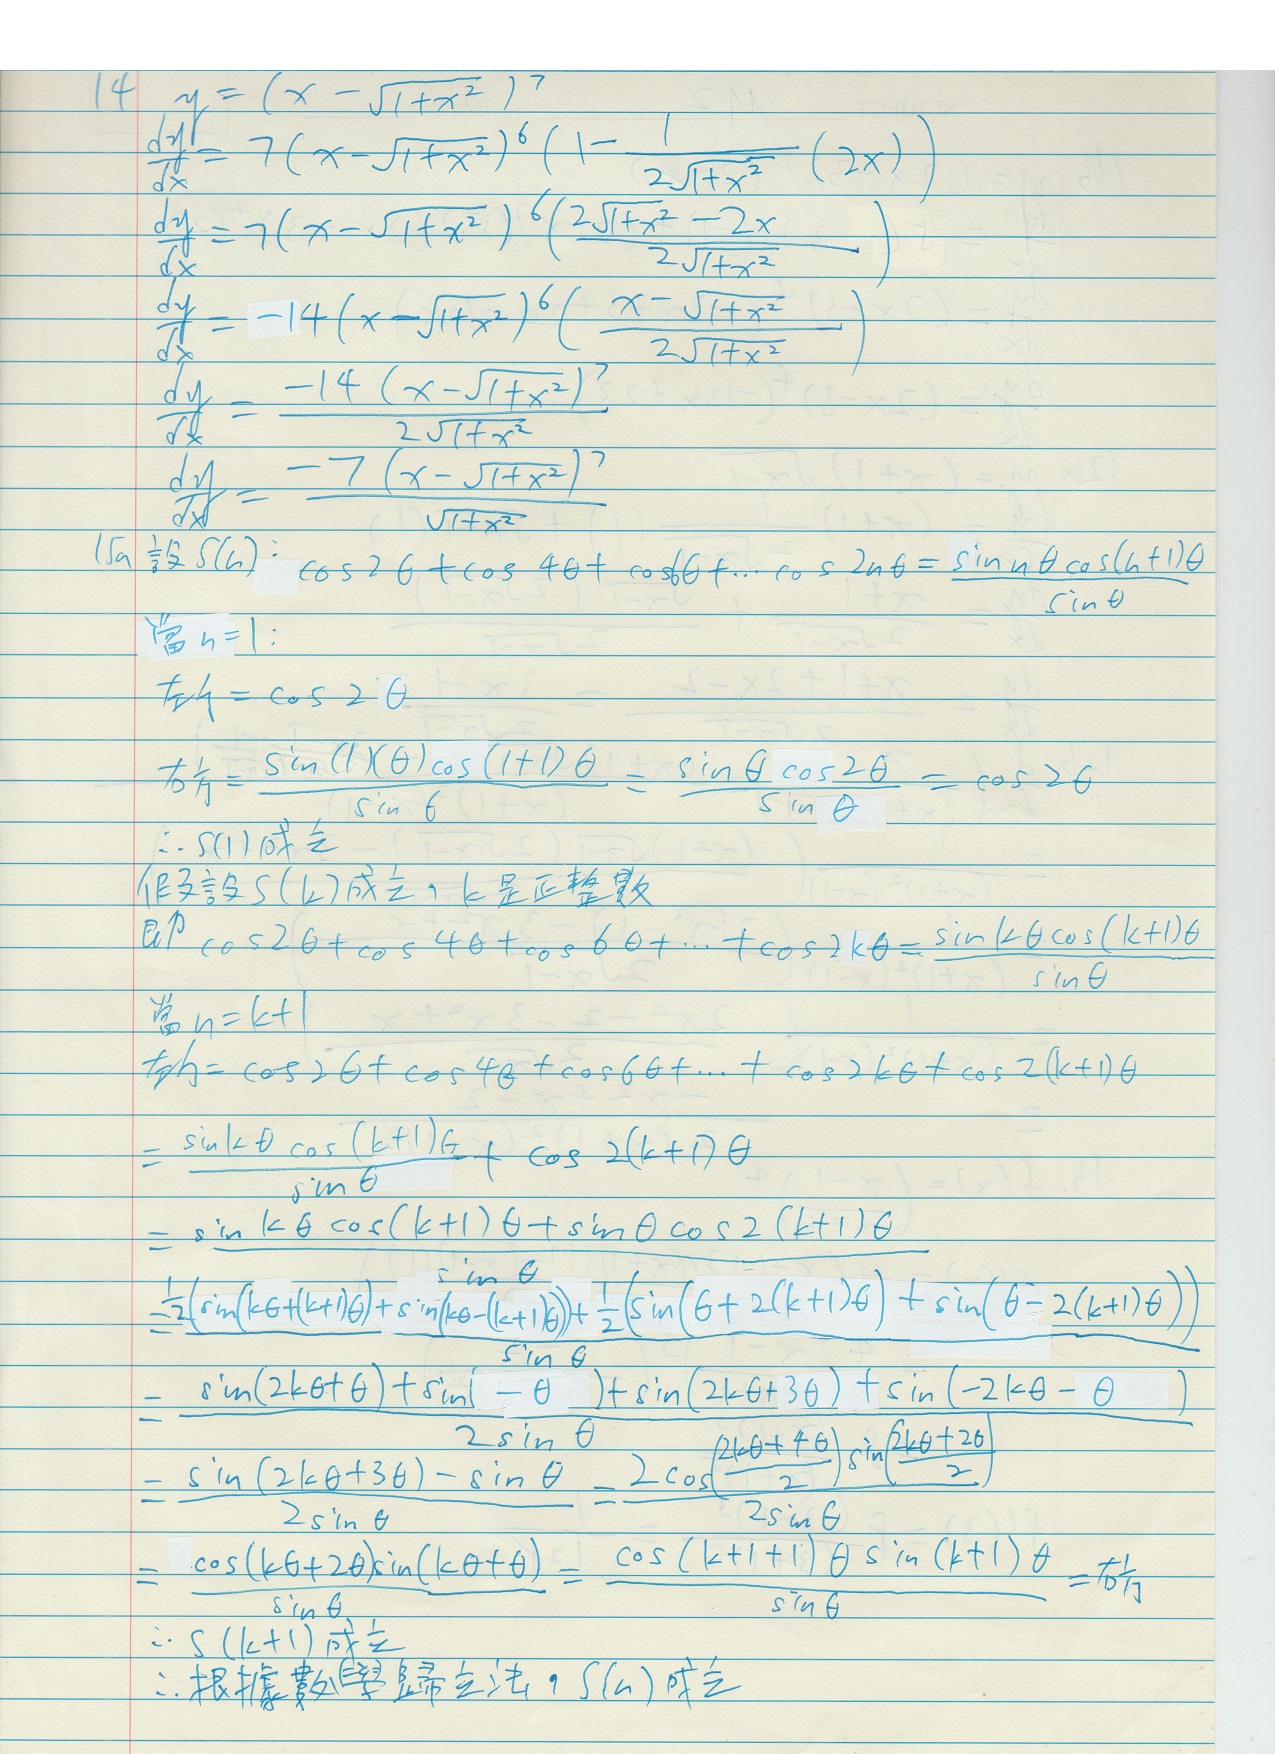 14 y = (x - √(1+x²))⁷
dy/dx = 7(x-√(1+x²))⁶(1 - 1/(2√(1+x²)) (2x))
dy/dx = 7(x-√(1+x²))⁶((2√(1+x²) - 2x)/(2√(1+x²)))
dy/dx = -14(x-√(1+x²))⁶((x-√(1+x²))/(2√(1+x²)))
dy/dx = (-14(x-√(1+x²))⁷)/(2√(1+x²))
dy/dx = (-7(x-√(1+x²))⁷)/(√(1+x²))
15a 設S(n): cos2θ+cos4θ+cos6θ+...cos2nθ = (sin nθ cos(n+1)θ)/(sinθ)
當n=1:
左方 = cos2θ
右方 = (sin(1)(θ)cos(1+1)θ)/(sinθ) = (sinθ cos2θ)/(sinθ) = cos2θ
∴S(1)成立
假設S(k)成立,k是正整數
即 cos2θ+cos4θ+cos6θ+...+cos2kθ = (sinkθcos(k+1)θ)/(sinθ)
當n=k+1
左方 = cos2θ+cos4θ+cos6θ+...+cos2kθ+cos2(k+1)θ
= (sinkθ cos(k+1)θ)/(sinθ) + cos2(k+1)θ
= (sinkθ cos(k+1)θ+sinθcos2(k+1)θ)/(sinθ)
= (½(sin(kθ+(k+1)θ)+sin(kθ-(k+1)θ))+½(sin(θ+2(k+1)θ)+sin(θ-2(k+1)θ)))/(sinθ)
= (sin(2kθ+θ)+sin(-θ)+sin(2kθ+3θ)+sin(-2kθ-θ))/(2sinθ)
= (sin(2kθ+3θ)-sinθ)/(2sinθ) = (2cos((2kθ+4θ)/2)sin((2kθ+2θ)/2))/(2sinθ)
= (cos(kθ+2θ)sin(kθ+θ))/(sinθ) = (cos(k+1+1)θ sin(k+1)θ)/(sinθ) = 右方
∴S(k+1)成立
∴根據數學歸立法,S(n)成立